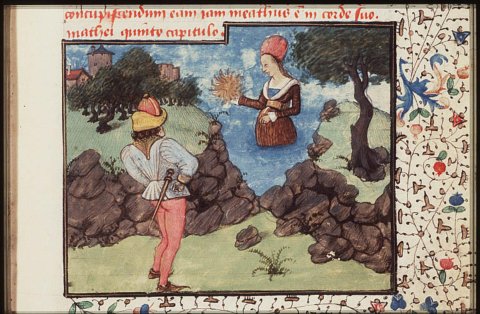 concupiscendum eam iam mechatus e in corde suo.
mathei quinto capitulo.